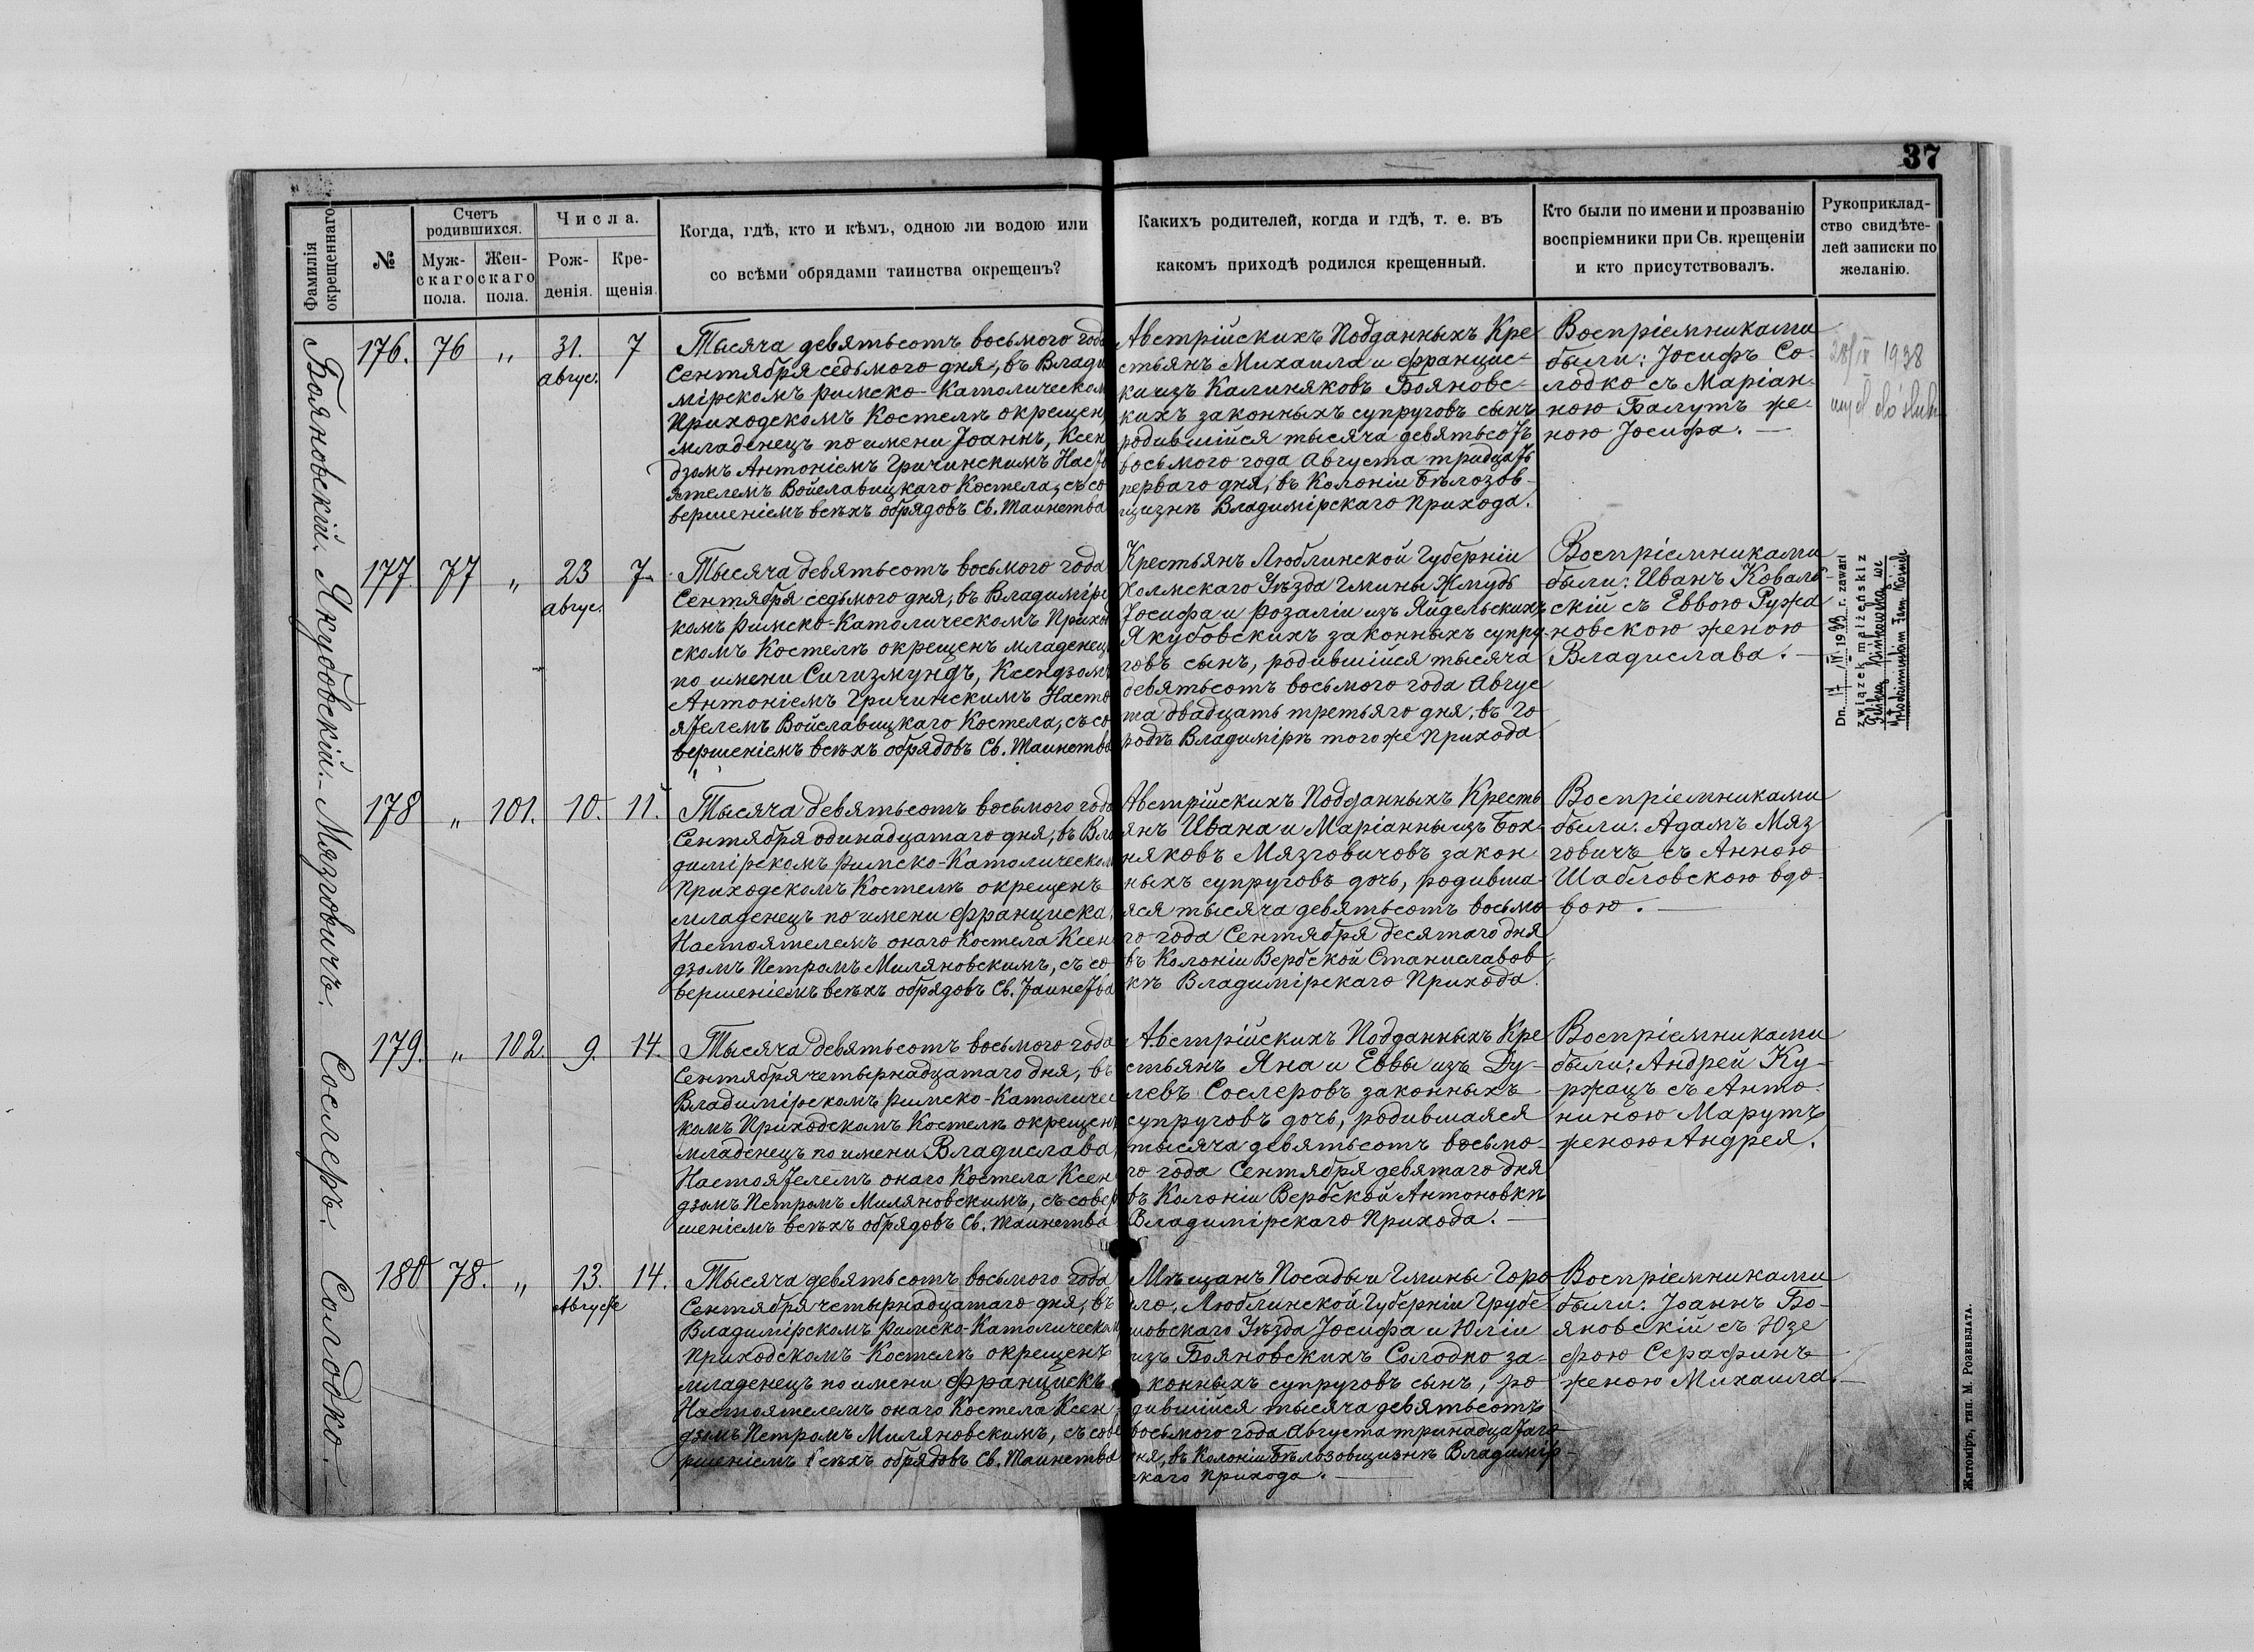 37
Фамилія окрещеннаго.
№
Счетъ родившихся.
Муж-
скаго
пола.
Жен-
скаго
пола.
Числа.
Рож-
денія.
Кре-
щенія.
Когда, гдѣ, кто и кѣмъ, одною ли водою или
со всѣми обрядами таинства окрещенъ?
Какихъ родителей, когда и гдѣ, т. е. въ
какомъ приходѣ родился крещенный.
Кто были по имени и прозванію
воспріемники при Св. крещеніи
и кто присутствовалъ.
Рукоприклад-
ство свидѣте-
лей записки по
желанію.
Бояновскій.
176. 76 „ 31. 7
авгус.
Тысяча девятьсотъ восьмого года
Сентября седьмого дня, въ Влади
мірскомъ Римско-Католическом
Приходскомъ Костелѣ окрещен
младенецъ по имени Іоаннъ, Ксен
дзомъ Антоніемъ Гричинскимъ Насто
ятелемъ Войславицкаго Костела, съ со
вершеніемъ всѣхъ обрядовъ Св. Таинства
Австрійскихъ Подданныхъ Кре
стьянъ Михаила и Францис-
ки изъ Калиняковъ Бояновс-
кихъ законныхъ супруговъ сынъ
родившійся тысяча девятьсотъ
восьмого года Августа тридцать
перваго дня, въ Колоніи Бѣлозов-
щизнѣ Владимірскаго Прихода.
Воспріемниками
были: Іосифъ Со-
лодко съ Маріан-
ною Балутъ же-
ною Іосифа. —
28/IX 1938
Якубовскій.
177 77 „ 23 7
авгус.
Тысяча девятьсотъ восьмого года
Сентября седьмого дня, въ Владимірс
комъ Римско-Католическомъ Приход
скомъ Костелѣ окрещенъ младенец
по имени Сигизмундъ, Ксендзомъ
Антоніемъ Гричинскимъ Насто
ятелемъ Войславицкаго Костела, съ со
вершеніемъ всѣхъ обрядовъ Св. Таинства
Крестьянъ Люблинской Губерніи
Холмскаго Уѣзда Гмины Жмудь
Іосифа и Розаліи изъ Яйдельскихъ
Якубовскихъ законныхъ супру-
говъ сынъ, родившійся тысяча
девятьсотъ восьмого года Авгус
та двадцать третьяго дня, въ го-
родѣ Владимірѣ того же Прихода
Воспріемниками
были: Иванъ Коваль-
скій съ Еввою Ружа
новскою женою
Владислава. —
r. zawarł
związek małżeński z
Мязговичъ.
178 „ 101. 10. 11.
Тысяча девятьсотъ восьмого года
Сентября одинадцатаго дня, въ Вла
димірскомъ Римско-Католическом
Приходскомъ Костелѣ окрещенъ
младенецъ по имени Франциска,
Настоятелемъ онаго Костела Ксен
дзомъ Петромъ Миляновскимъ, съ со
вершеніемъ всѣхъ обрядовъ Св. Таинства
Австрійскихъ Подданныхъ Кресть
янъ Ивана и Маріанны изъ Бох-
няковъ Мязговичовъ закон-
ныхъ супруговъ дочь, родивша-
яся тысяча девятьсотъ восьмо
го года Сентября десятаго дня
въ Колоніи Вербской Станиславов-
кѣ Владимірскаго Прихода.
Воспріемниками
были: Адамъ Мяз
говичъ съ Анною
Шабловскою вдо-
вою. —
Сослеръ.
179. „ 102. 9. 14.
Тысяча девятьсотъ восьмого года
Сентября четырнадцатаго дня, въ
Владимірскомъ Римско-Католичес
комъ Приходскомъ Костелѣ окрещен
младенецъ по имени Владислава,
Настоятелемъ онаго Костела Ксен
дзомъ Петромъ Миляновскимъ, съ совер
шеніемъ всѣхъ обрядовъ Св. Таинства
Австрійскихъ Подданныхъ Кре
стьянъ Яна и Еввы изъ Ду-
левъ Сослеровъ законныхъ
супруговъ дочь, родившаяся
тысяча девятьсотъ восьмо-
го года Сентября девятаго дня
въ Колоніи Вербской Антоновкѣ
Владимірскаго Прихода. —
Воспріемниками
были: Андрей Ку-
ржацъ съ Анто-
ниною Марутъ
женою Андрея.
Солодко.
180 78. „ 13. 14.
Августа
Тысяча девятьсотъ восьмого года
Сентября четырнадцатаго дня, въ
Владимірскомъ Римско-Католическом
Приходскомъ Костелѣ окрещенъ
младенецъ по имени Францискъ
Настоятелемъ онаго Костела Ксен
дзомъ Петромъ Миляновскимъ, съ сове
ршеніемъ всѣхъ обрядовъ Св. Таинства
Мѣщанъ Посады и Гмины Горо
дло, Люблинской Губерніи Грубе
шовскаго Уѣзда Іосифа и Юліи
изъ Бояновскихъ Солодко за-
конныхъ супруговъ сынъ, ро-
дившійся тысяча девятьсотъ
восьмого года Августа тринадцатаго
дня, въ Колоніи Бѣлозовщизнѣ Владимір-
скаго Прихода. —
Воспріемниками
были: Іоаннъ Бо-
яновскій съ Юзе
фою Серафинъ
женою Михаила. —
Житоміръ, тип. М. Розенблата.